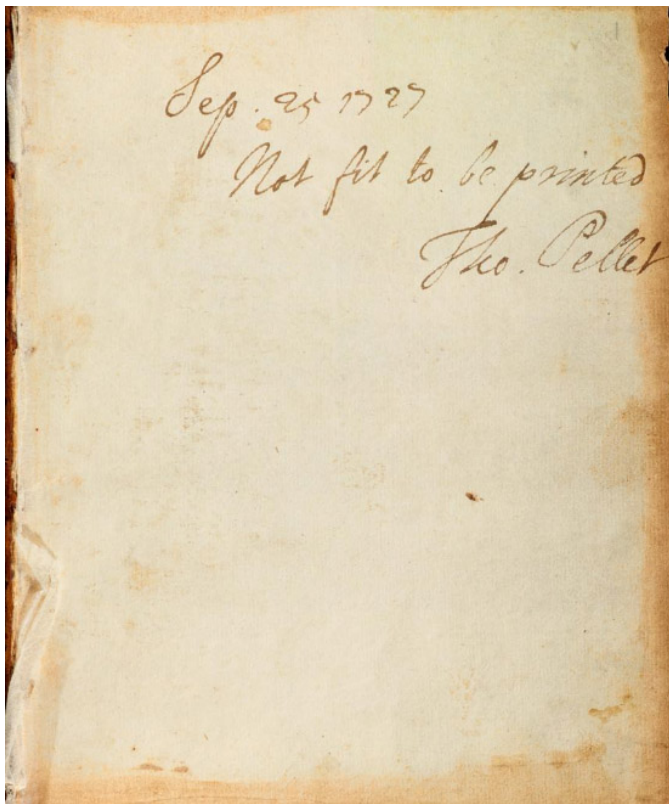 Sep. 25 1727
Not fit to be printed
Tho. Pellet